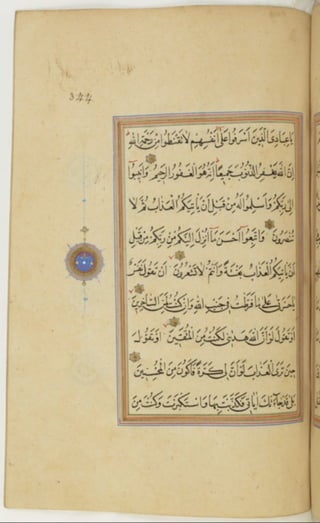 344
يا عبادي الذين اسرفوا على انفسهم لا تقنطوا من رحمة الله
ان الله يغفر الذنوب جميعا انه هو الغفور الرحيم وانيبوا
الى ربكم واسلموا له من قبل ان ياتيكم العذاب ثم لا
تنصرون واتبعوا احسن ما انزل اليكم من ربكم من قبل
ان ياتيكم العذاب بغتة وانتم لا تشعرون ان تقول نفس
يا حسرتى على ما فرطت في جنب الله وان كنت لمن الساخرين
او تقول لو ان الله هداني لكنت من المتقين او تقول
حين ترى العذاب لو ان لي كرة فاكون من المحسنين
بلى قد جاءتك اياتي فكذبت بها واستكبرت وكنت من